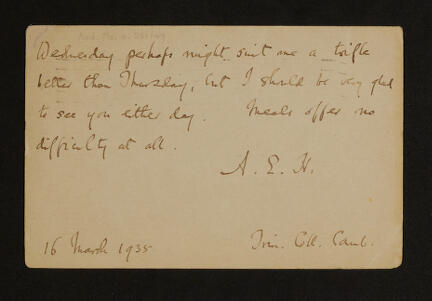 Wednesday perhaps might suit me a trifle
better than Thursday, but I should be very glad
to see you either day. Meals offer no
difficulty at all.
A. E. H.
16 March 1935
Trin. Coll. Camb.